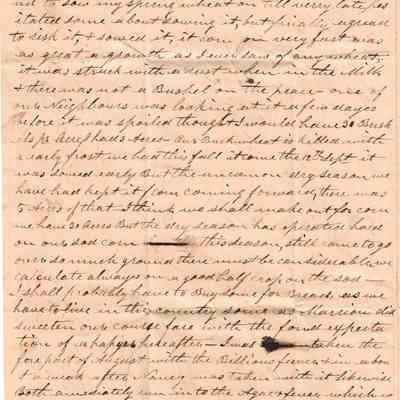 not to sow my spring wheat on till very late, hes
itated some about sowing it, but finally agreed
to risk it, & sowed it, it com on very fast was
as great a growth as I ever saw of any wheat,
it was struck with a rust when in the Milk
& there was not a Bushel on the peace - one of
our Neighbours was looking at it a few days
before it was spoiled thought I would have 30 Bush
els pr Acre I had 5 Acres - Our Buckwheat is killed with
early frost we had this fall it come the 12th Sept it
was sowed early But the uncommon dry season we
have had kept it from coming forward, there was
5 Acres of that I think we shall make out for corn
we have 30 acres But the dry season has operated hard
on our sod corn this season, still come to go
over so much ground there must be considerable, we
calculate always on a good half crop on the sod -
I shall probably have to Buy some for Bread, as we
have to live in the country some as Marion did
sweeten our course fare with the fond expecta
tion of a happy hereafter - I was taken the
fore part of August with the Billious fever & in about
a week after Nancy was taken with it likewise
Both amediately run into the Ague & fever which